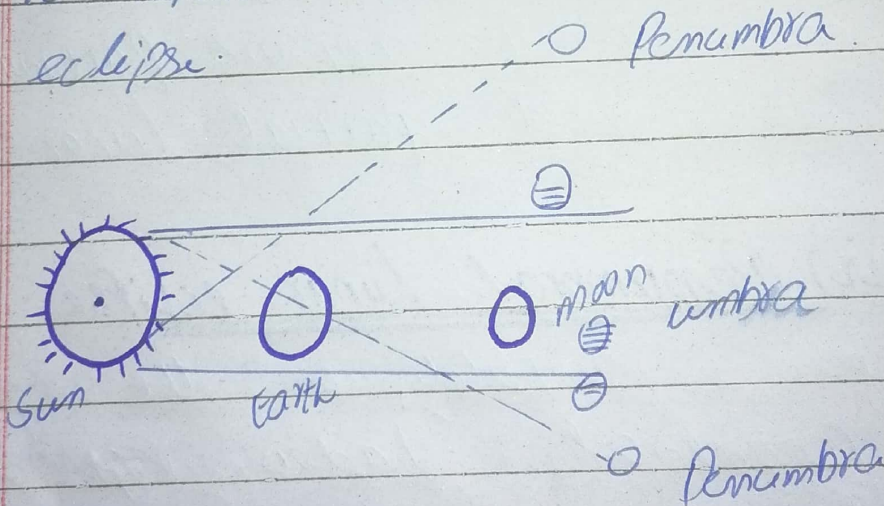 eclipse.
Penumbra.
moon
umbra
Sun
Earth
Penumbra